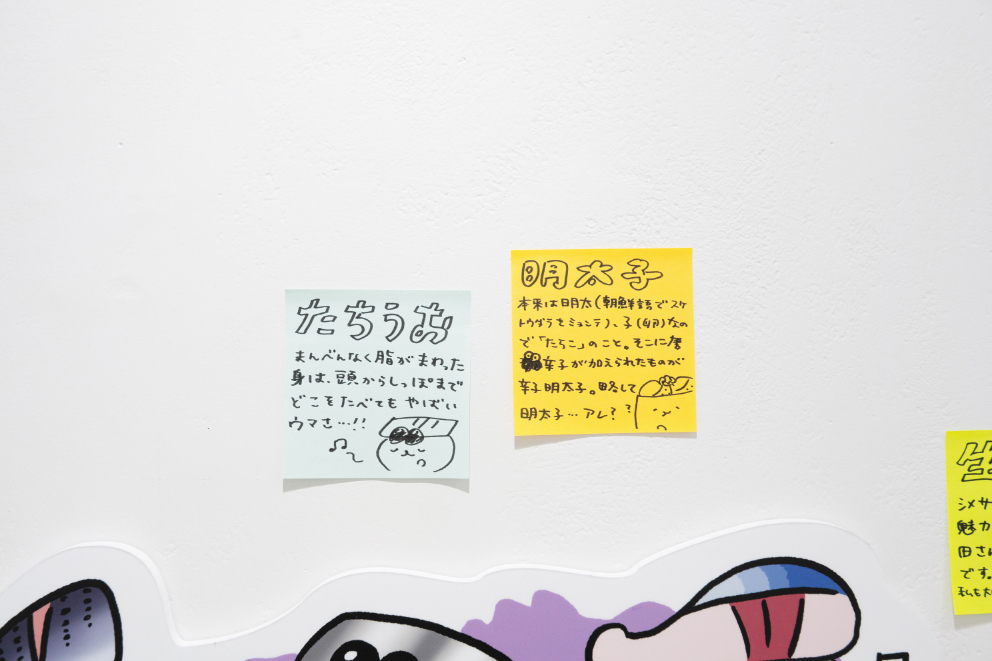 たちうお
まんべんなく脂がまわった
身は、頭からしっぽまで
どこをたべてもやばい
ウマさ…!!
明太子
本来は明太(朝鮮語でスケ
トウダラをミョンテ)、子(卵)なの
で「たらこ」のこと。そこに唐
辛子が加えられたものが
辛子明太子。略して
明太子…アレ??
生
シメサ
魅力
田さん
です。
私も大